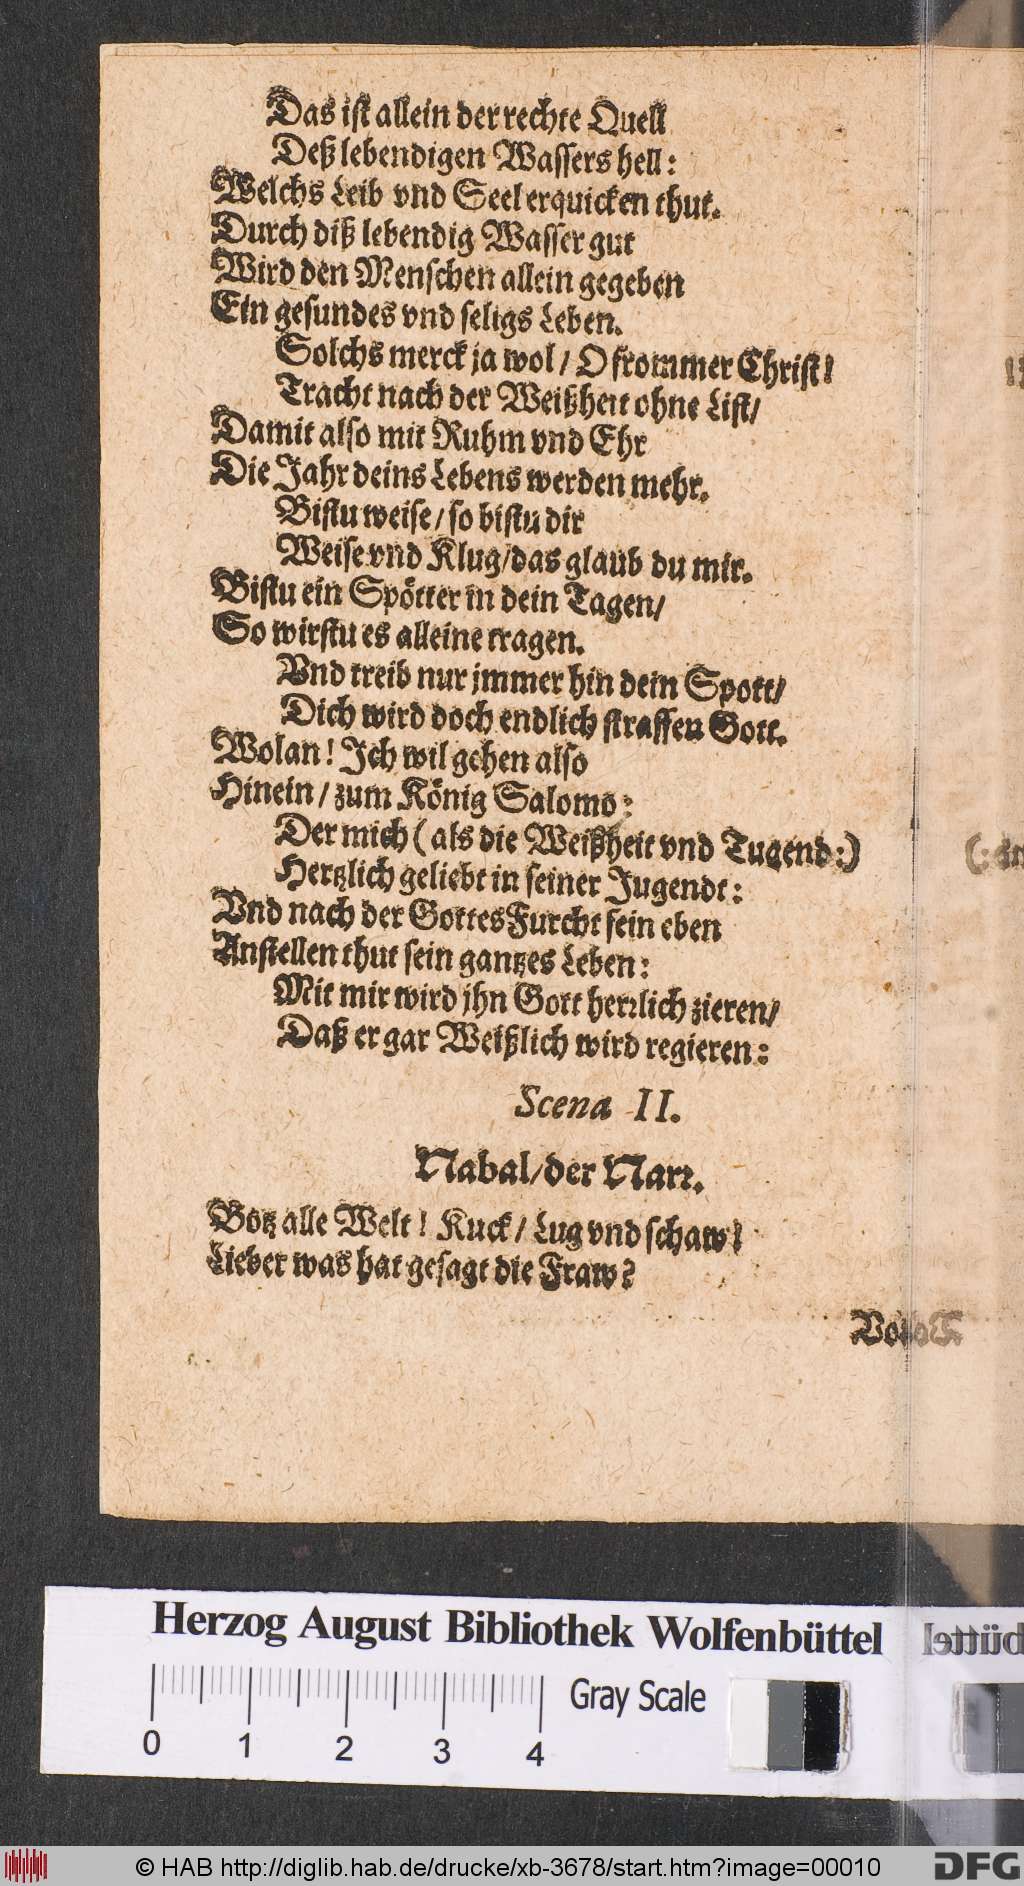 Das ist allein der rechte Quell
Deß lebendigen Wassers hell:
Welchs Leib vnd Seel erquicken thut.
Durch diß lebendig Wasser gut
Wird den Menschen allein gegeben
Ein gesundes vnd seligs Leben.
Solchs merck ja wol / O frommer Christ!
Tracht nach der Weißheit ohne List/
Damit also mit Ruhm vnd Ehr
Die Jahr deins Lebens werden mehr.
Bistu weise / so bistu dir
Weise vnd Klug/das glaub du mir.
Bistu ein Spötter in dein Tagen/
So wirstu es alleine tragen.
Vnd treib nur jmmer hin dein Spott/
Dich wird doch endlich straffen Gott.
Wolan! Ich wil gehen also
Hinein / zum König Salomo:
Der mich ( als die Weißheit vnd Tugend:)
Hertzlich geliebt in seiner Jugendt:
Vnd nach der GottesFurcht fein eben
Anstellen thut sein gantzes Leben:
Mit mir wird jhn Gott herꝛlich zieren/
Daß er gar Weißlich wird regieren:
Scena II.
Nabal/der Narꝛ.
Botz alle Welt! Kuck / Lug vnd schaw!
Lieber was hat gesagt die Fraw?
Herzog August Bibliothek Wolfenbüttel
0 1 2 3 4
Gray Scale
© HAB http://diglib.hab.de/drucke/xb-3678/start.htm?image=00010
DFG